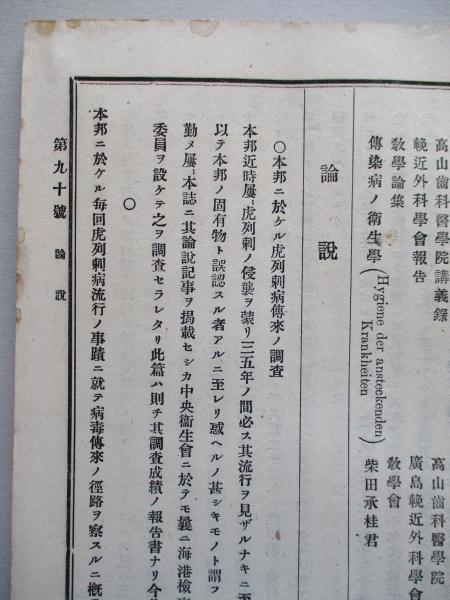 高山齒科醫學院講義錄　高山齒科醫學院
輓近外科學會報告　廣島輓近外科學會
敎學論集　敎學會
傳染病ノ衛生學(Hygiene der ansteckenden Krankheiten)　柴田承桂君
論說
〇本邦ニ於ケル虎列剌病傳來ノ調査
本邦近時屢〻虎列剌ノ侵襲ヲ蒙リ三五年ノ間必ス其流行ヲ見ザルナキニ至
以テ本邦ノ固有物ト誤認スル者アルニ至レリ惑ヘルノ甚シキモノト謂フ
勤メ屢〻本誌ニ其論說記事ヲ揭載セシカ中央衛生會ニ於テモ曩ニ海港檢
委員ヲ設ケテ之ヲ調査セラレタリ此篇ハ則チ其調査成績ノ報告書ナリ今
〇
本邦ニ於ケル每回虎列剌病流行ノ事蹟ニ就テ病毒傳來ノ徑路ヲ察スルニ槪
第九十號　論說